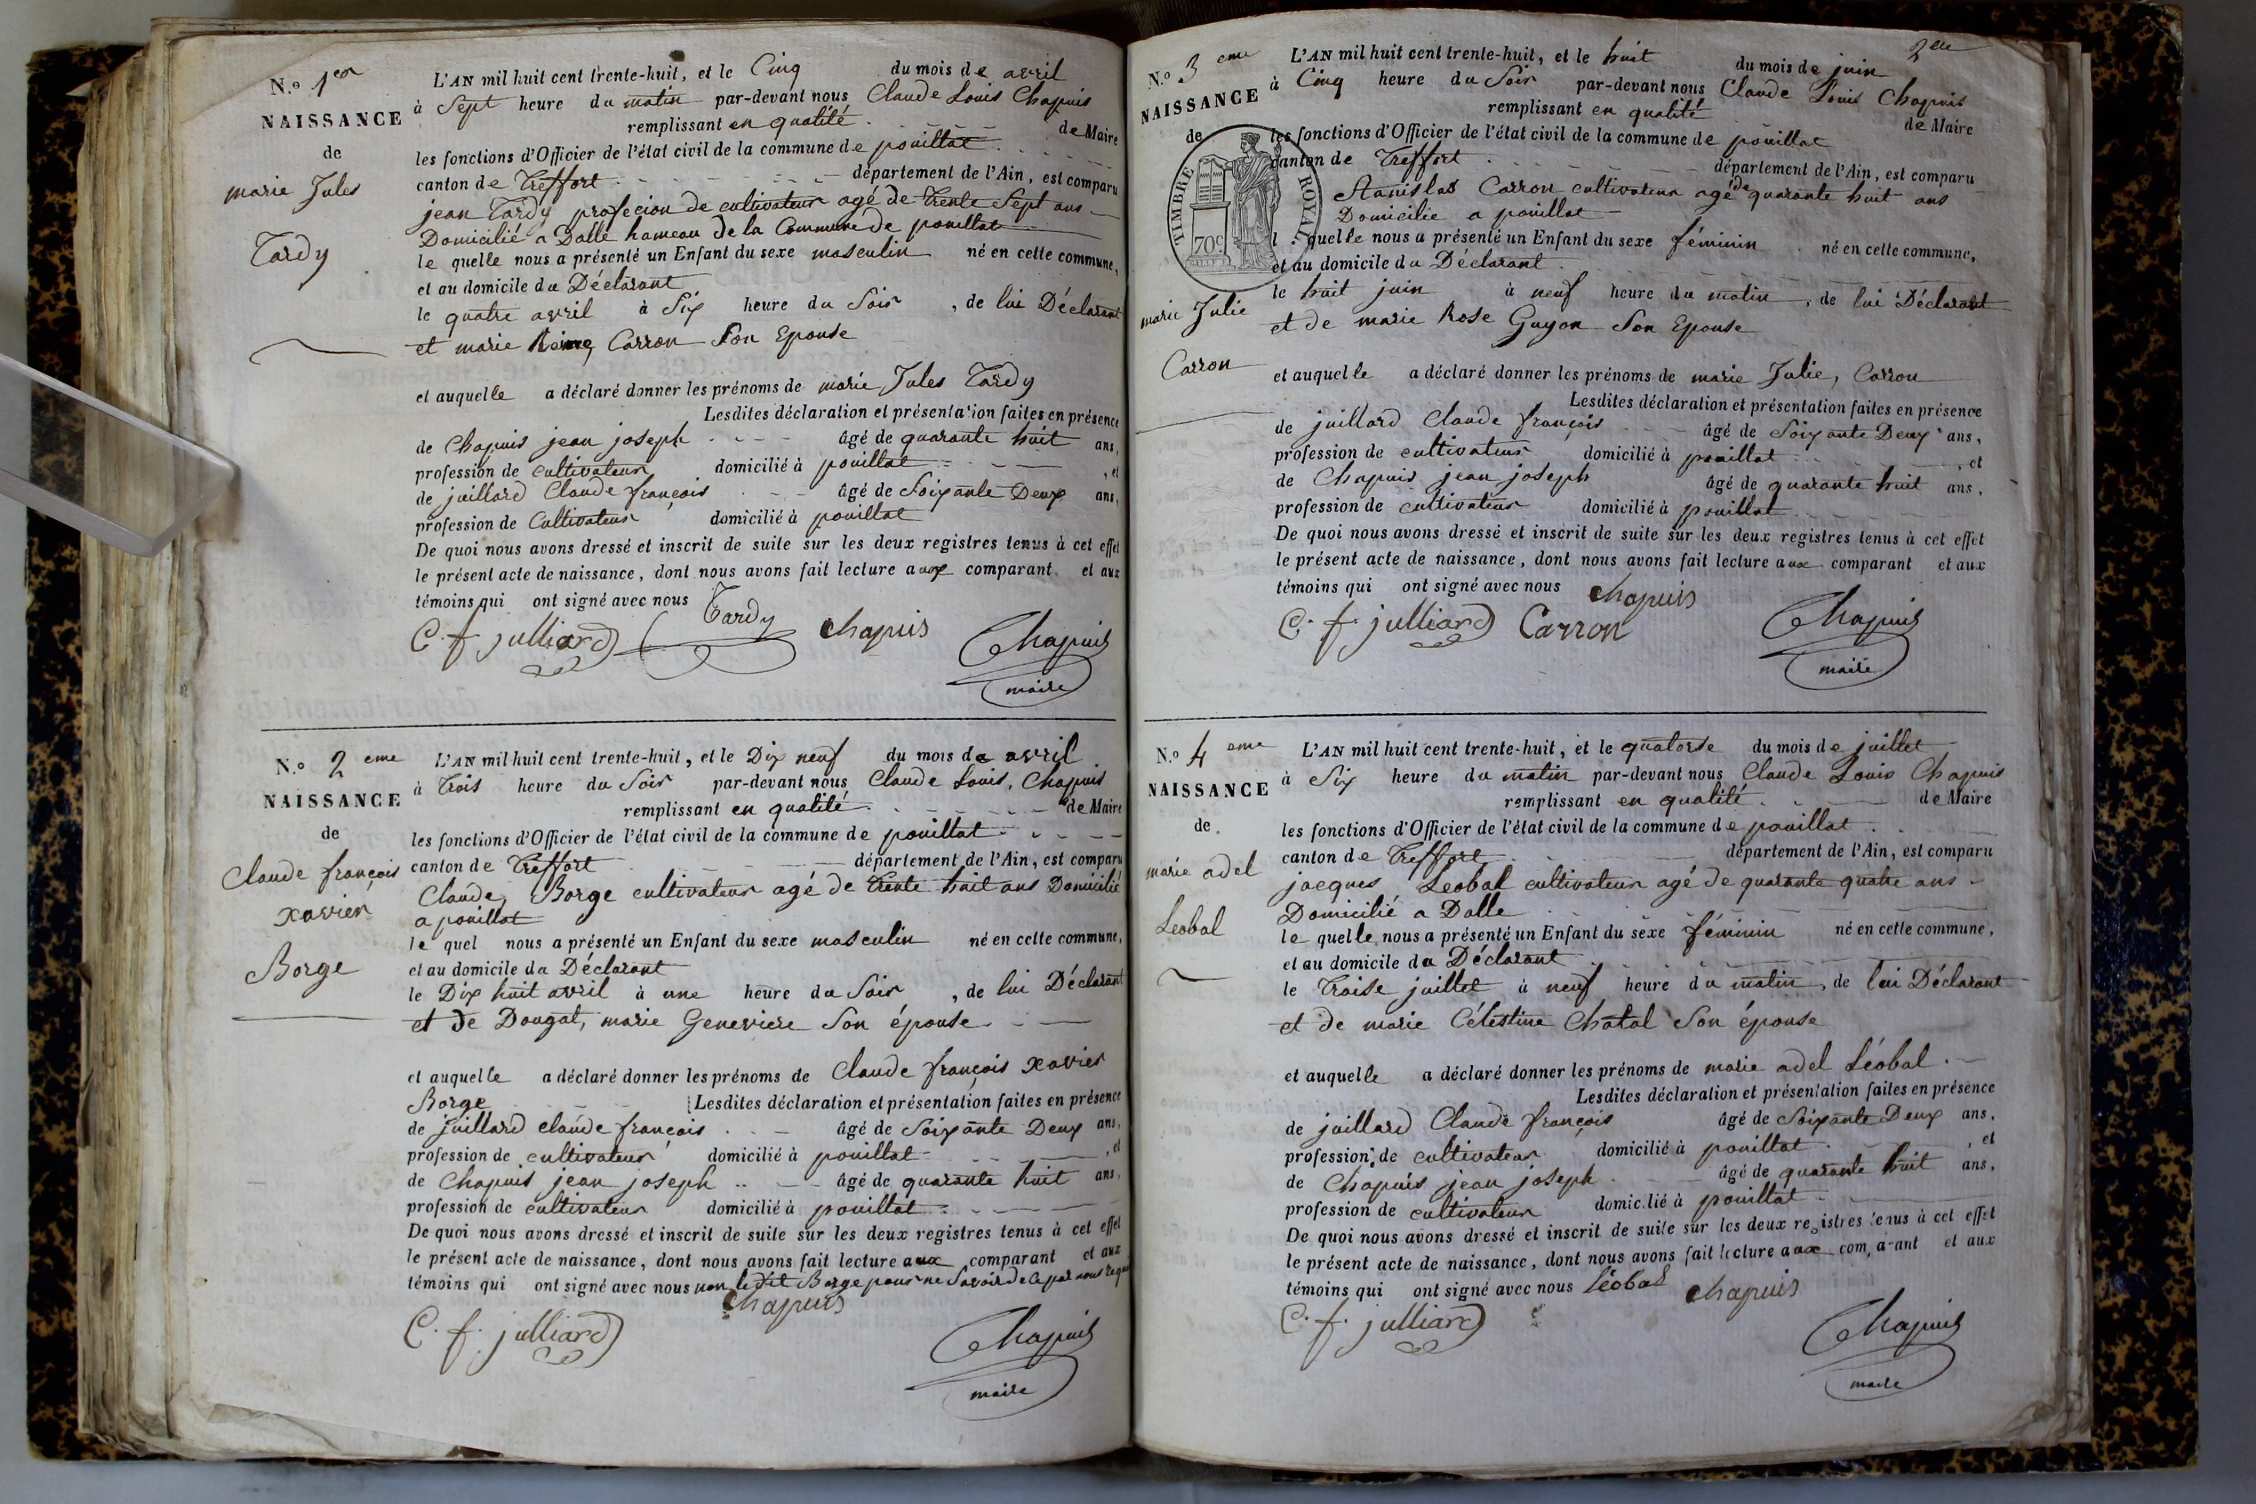 N.o 1er
NAISSANCE
de
marie Jules
Tardy
L'AN mil huit cent trente-huit, et le Cinq du mois de avril
à Sept heure du matin par-devant nous Claude Louis Chapuis
remplissant en qualité de Maire
les fonctions d'Officier de l'état civil de la commune de pouillat
canton de Treffort département de l'Ain, est comparu
jean Tardy profecion de cultivateur agé de trente Sept ans
Domicilié a Dalle hameau de la Commune de pouillat
le quelle nous a présenté un Enfant du sexe masculin né en cette commune,
et au domicile du Déclarant
le quatre avril à Six heure du Soir, de lui Déclarant
et marie Carron Son Epouse
et auquelle a déclaré donner les prénoms de marie Jules Tardy
Lesdites déclaration et présentation faites en présence
de Chapuis jean joseph âgé de quarante huit ans,
profession de cultivateur domicilié à pouillat, et
de juillard Claude françois âgé de Soixante Deux ans,
profession de Cultivateur domicilié à pouillat
De quoi nous avons dressé et inscrit de suite sur les deux registres tenus à cet effet
le présent acte de naissance, dont nous avons fait lecture aux comparant et aux
témoins qui ont signé avec nous
Tardy
C. f. julliard chapuis Chapuis
maire
N.o 2eme
NAISSANCE
de
Claude françois
xavier
Borge
L'AN mil huit cent trente-huit, et le Dix neuf du mois de avril
à Trois heure du Soir par-devant nous Claude Louis, Chapuis
remplissant en qualité de Maire
les fonctions d'Officier de l'état civil de la commune de pouillat
canton de Treffort département de l'Ain, est comparu
Claude, Borge cultivateur agé de trente huit ans Domicilié
a pouillat
le quel nous a présenté un Enfant du sexe masculin né en cette commune,
et au domicile du Déclarant
le Dix huit avril à une heure du Soir, de lui Déclarant
et de Dougat, marie Genevieve Son épouse
et auquelle a déclaré donner les prénoms de Claude françois xavier
Borge Lesdites déclaration et présentation faites en présence
de juillard claude françois âgé de Soixante Deux ans,
profession de cultivateur domicilié à pouillat, et
de Chapuis jean joseph âgé de quarante huit ans,
profession de cultivateur domicilié à pouillat
De quoi nous avons dressé et inscrit de suite sur les deux registres tenus à cet effet
le présent acte de naissance, dont nous avons fait lecture aux comparant et aux
témoins qui ont signé avec nous non le dit Borge pour ne Savoir de ce par nous requis
chapuis
C. f. julliard Chapuis
maire
2eme
N.o 3eme
NAISSANCE
de
TIMBRE ROYAL
70c
marie Julie
Carron
L'AN mil huit cent trente-huit, et le huit du mois de juin
à Cinq heure du Soir par-devant nous Claude Louis Chapuis
remplissant en qualité de Maire
les fonctions d'Officier de l'état civil de la commune de pouillat
canton de Treffort département de l'Ain, est comparu
Stanislas Carron cultivateur agé de quarante huit ans
Domicilié a pouillat
l quelle nous a présenté un Enfant du sexe féminin né en cette commune,
et au domicile du Déclarant
le huit juin à neuf heure du matin, de lui Déclarant
et de marie Rose Guyon Son Epouse
et auquelle a déclaré donner les prénoms de marie Julie, Carron
Lesdites déclaration et présentation faites en présence
de juillard Claude françois âgé de Soixante Deux ans,
profession de cultivateur domicilié à pouillat, et
de Chapuis jean joseph âgé de quarante huit ans,
profession de cultivateur domicilié à pouillat
De quoi nous avons dressé et inscrit de suite sur les deux registres tenus à cet effet
le présent acte de naissance, dont nous avons fait lecture aux comparant et aux
témoins qui ont signé avec nous chapuis
C. f. julliard Carron Chapuis
maire
N.o 4eme
NAISSANCE
de
marie adel
Leobal
L'AN mil huit cent trente-huit, et le quatorse du mois de juillet
à Six heure du matin par-devant nous Claude Louis Chapuis
remplissant en qualité de Maire
les fonctions d'Officier de l'état civil de la commune de pouillat
canton de Treffort département de l'Ain, est comparu
jacques, Leobal cultivateur agé de quarante quatre ans
Domicilié a Dalle
le quelle nous a présenté un Enfant du sexe féminin né en cette commune,
et au domicile du Déclarant
le Treise juillet à neuf heure du matin, de lui Déclarant
et de marie Célestine Chatal Son épouse
et auquelle a déclaré donner les prénoms de marie adel Léobal
Lesdites déclaration et présentation faites en présence
de juillard Claude françois âgé de Soixante Deux ans,
profession de cultivateur domicilié à pouillat, et
de Chapuis jean joseph âgé de quarante huit ans,
profession de cultivateur domicilié à pouillat
De quoi nous avons dressé et inscrit de suite sur les deux registres tenus à cet effet
le présent acte de naissance, dont nous avons fait lecture aux comparant et aux
témoins qui ont signé avec nous léobal chapuis
C. f. julliard Chapuis
maire